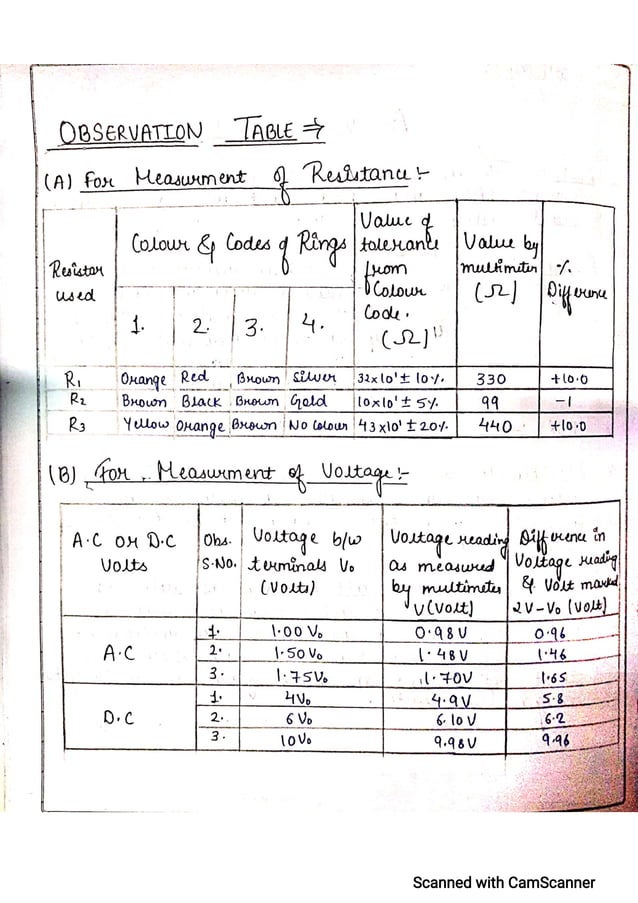 OBSERVATION TABLE ⇒
(A) For Measurment of Resistance :-
Resistor used | Colour & Codes of Rings | Value of tolerance from Colour Code. (Ω) | Value by multimeter (Ω) | % Difference
1. | 2. | 3. | 4.
R1 | Orange | Red | Brown | Silver | 32x10' ± 10% | 330 | +10.0
R2 | Brown | Black | Brown | Gold | 10x10' ± 5% | 99 | -1
R3 | Yellow | Orange | Brown | No Colour | 43x10' ± 20% | 440 | +10.0
(B) For Measurment of Voltage :-
A.C or D.C Volts | Obs. S.No. | Voltage b/w terminals Vo (Volts) | Voltage reading as measured by multimeter V(Volt) | Difference in Voltage reading & Volt marked 2V-Vo (Volt)
A.C | 1. | 1.00 Vo | 0.98 V | 0.96
2. | 1.50 Vo | 1.48V | 1.46
3. | 1.75Vo | 1.70V | 1.65
D.C | 1. | 4Vo | 4.9V | 5.8
2. | 6 Vo | 6.10V | 6.2
3. | 10Vo | 9.98V | 9.96
Scanned with CamScanner